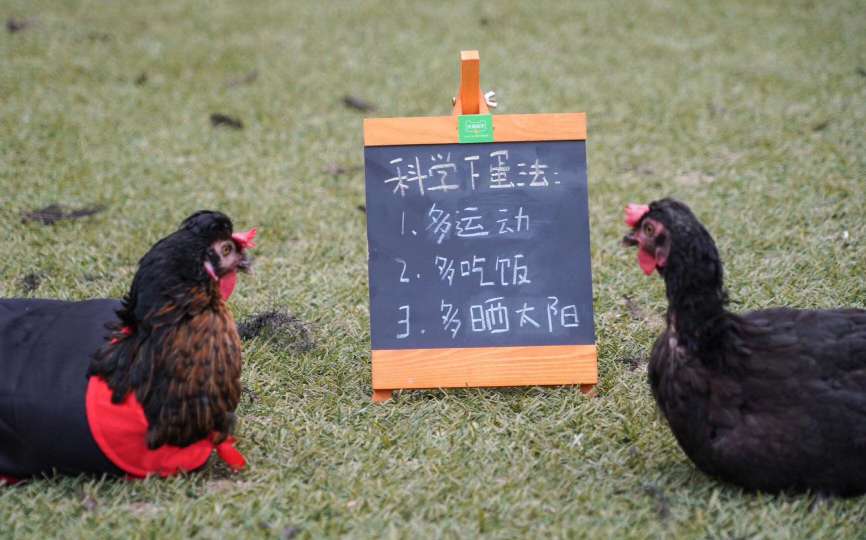 科学下蛋法:
1. 多运动
2. 多吃饭
3. 多晒太阳